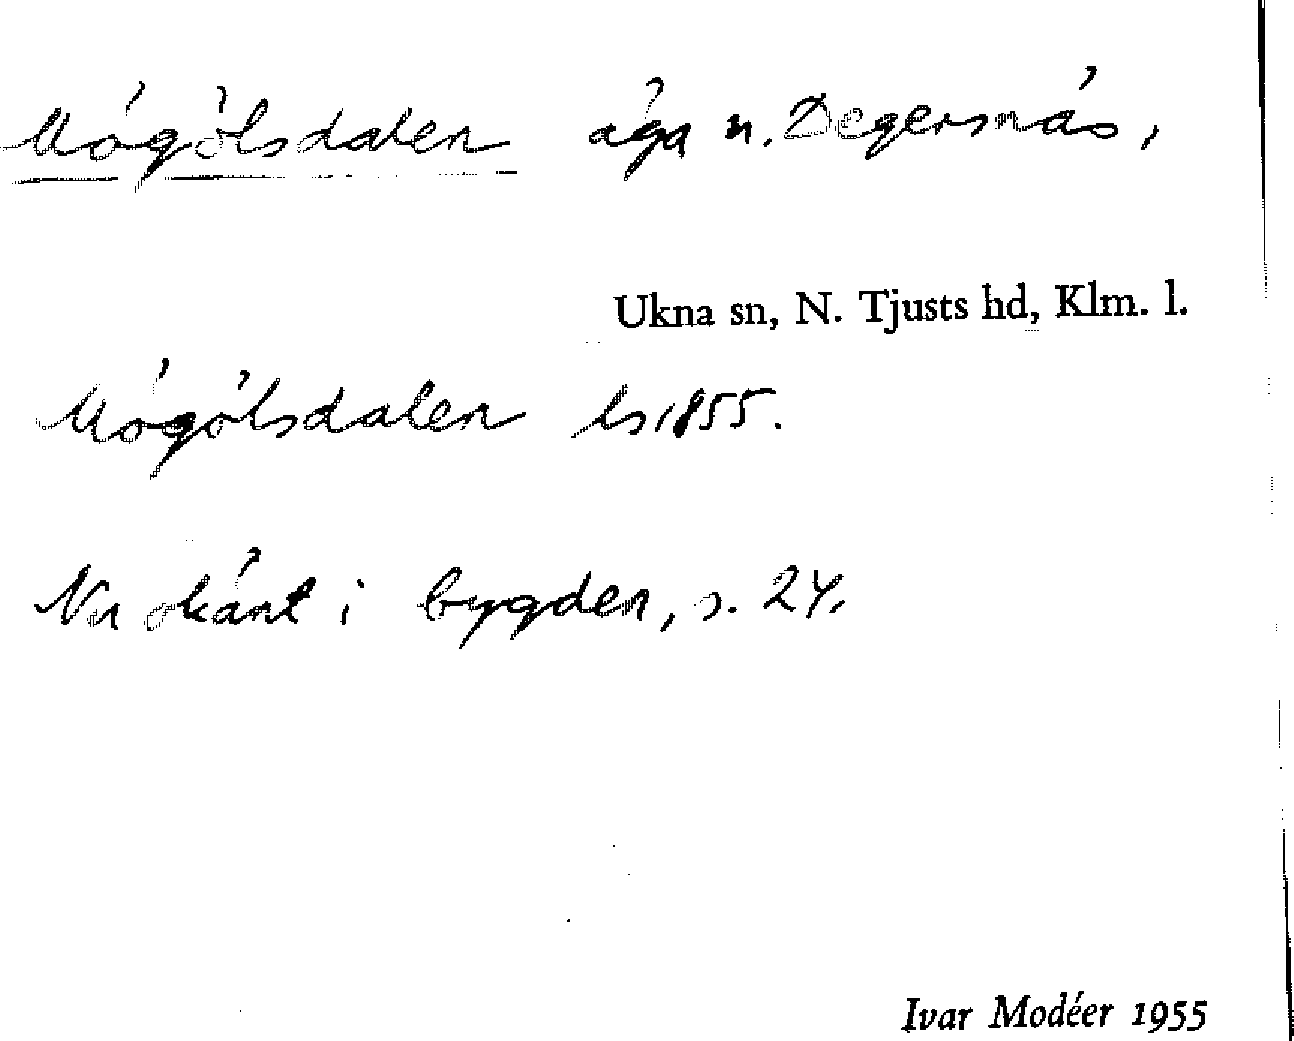 Mógólsdalen ága u. Degersnás,
Ukna sn, N. Tjusts hd, Klm. l.
Mógólsdalen ls 1855.
Nu okánt i bygden, s. 24.
Ivar Modéer 1955